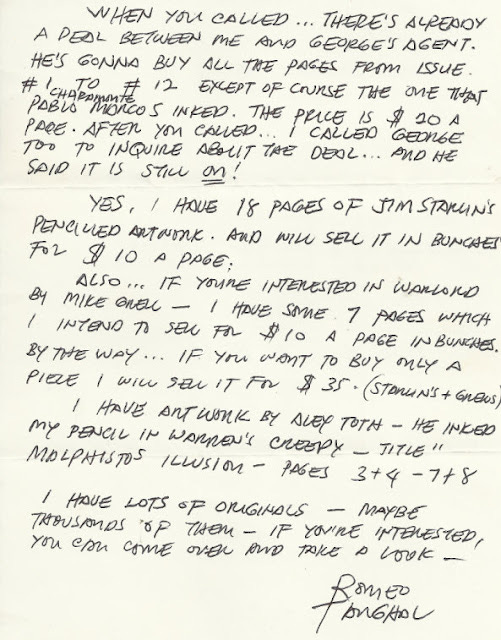 WHEN YOU CALLED... THERE'S ALREADY
A DEAL BETWEEN ME AND GEORGE'S AGENT.
HE'S GONNA BUY ALL THE PAGES FROM ISSUE.
#1 TO #12 EXCEPT OF COURSE THE ONE THAT
CHARAMONTE
PABLO MARCOS INKED. THE PRICE IS $20 A
PAGE. AFTER YOU CALLED... I CALLED GEORGE
TOO TO INQUIRE ABOUT THE DEAL... AND HE
SAID IT IS STILL ON!
YES, I HAVE 18 PAGES OF JIM STARLIN'S
PENCILLED ARTWORK. AND WILL SELL IT IN BUNCHES
FOR $10 A PAGE;
ALSO... IF YOU'RE INTERESTED IN WARLORD
BY MIKE GRELL — I HAVE SOME 7 PAGES WHICH
I INTEND TO SELL FOR $10 A PAGE IN BUNCHES.
BY THE WAY... IF YOU WANT TO BUY ONLY A
PIECE I WILL SELL IT FOR $35. (STARLIN'S +
I HAVE ARTWORK BY ALEX TOTH — HE INKED
MY PENCIL IN WARREN'S CREEPY — TITLE "
MOLPHISTOS ILLUSION — PAGES 3+4 - 7+8
I HAVE LOTS OF ORIGINALS — MAYBE
THOUSANDS OF THEM — IF YOU'RE INTERESTED,
YOU CAN COME OVER AND TAKE A LOOK —
ROMEO
TANGHAL